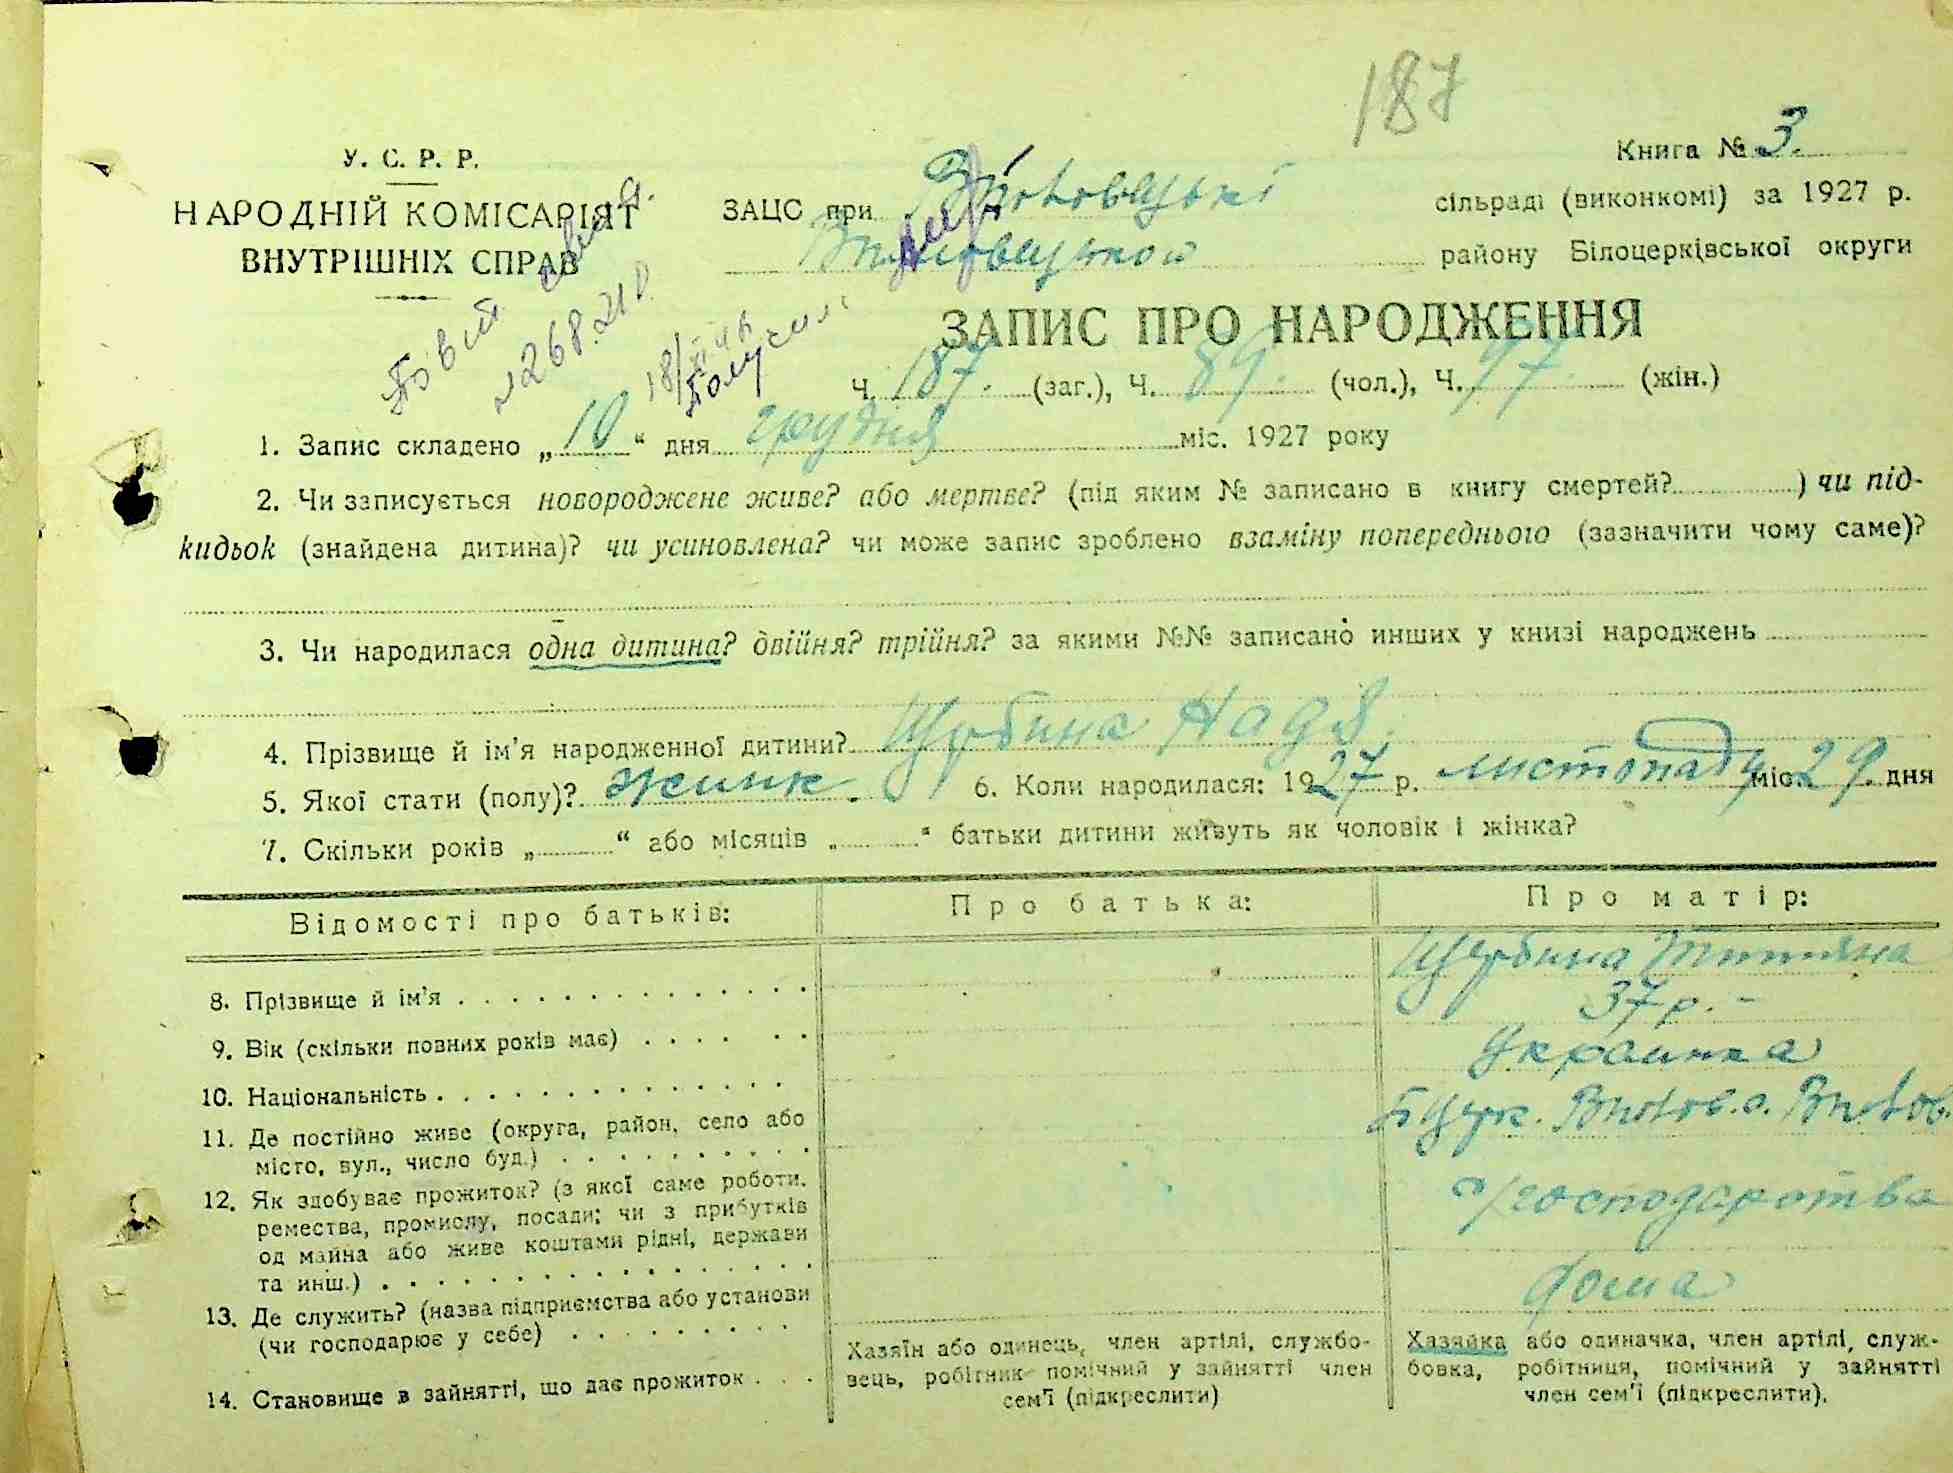 187
У. С. Р. Р.
НАРОДНІЙ КОМІСАРІЯТ
ВНУТРІШНІХ СПРАВ
Книга № 3.
ЗАЦС при сільраді (виконкомі) за 1927 р.
району Білоцерківської округи
ЗАПИС ПРО НАРОДЖЕННЯ
Ч. 187. (заг.), Ч. 89. (чол.), Ч. 97. (жін.)
1. Запис складено „10“ дня грудня міс. 1927 року
2. Чи записується новороджене живе? або мертве? (під яким № записано в книгу смертей? ) чи під-
кидьок (знайдена дитина)? чи усиновлена? чи може запис зроблено взаміну попереднього (зазначити чому саме)?
3. Чи народилася одна дитина? двійня? трійня? за якими №№ записано инших у книзі народжень
4. Прізвище й ім’я народженної дитини? Щербина Надя.
5. Якої стати (полу)? жинк. 6. Коли народилася: 1927 р. листопаду міс. 29. дня
7. Скільки років „ “ або місяців „ “ батьки дитини живуть як чоловік і жінка?
Відомості про батьків: Про батька: Про матір:
8. Прізвище й ім’я Щербина Титяна
9. Вік (скільки повних років має) 37 р. –
10. Національність Украинка
11. Де постійно живе (округа, район, село або
місто, вул., число буд.)
12. Як здобуває прожиток? (з яксї саме роботи,
ремества, промислу, посади; чи з прибутків
од майна або живе коштами рідні, держави
та инш.) господарства
13. Де служить? (назва підприємства або установи
(чи господарює у себе) дома
14. Становище в зайнятті, що дає прожиток
Хазяїн або одинець, член артілі, службо-
вець, робітник помічний у зайнятті член
сем’ї (підкреслити)
Хазяйка або одиначка, член артілі, служ-
бовка, робітниця, помічний у зайнятті
член сем’ї (підкреслити).